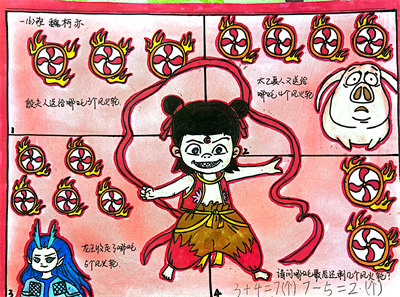 一(6)班 魏栩亦
殷夫人送给哪吒3个风火轮。
1
太乙真人又送给
哪吒4个风火轮。
2
龙王收走了哪吒
5个风火轮。
3
请问哪吒最后还剩几个风火轮?
3+4=7(个) 7-5=2(个)
4